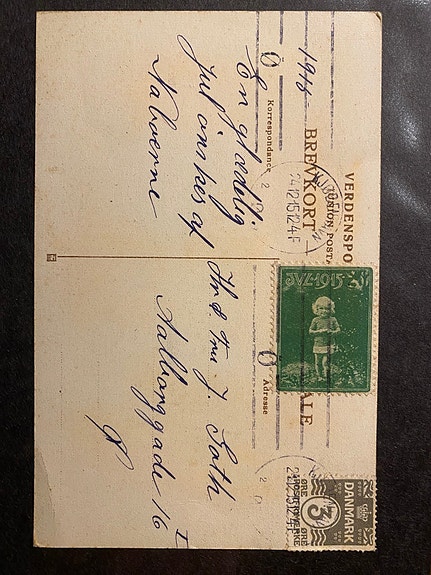 VERDENSPO
UNION POSTA
BREVKORT
ALE
Korrespondance
Adresse
24.12.15.12-4 F
Ø
Ø
1915
En glædelig
Jul ønskes af
Naboerne
JUL 1915
DANMARK
3
ØRE
ØRE
Hr & Fru J.
Aalborggade 16
I